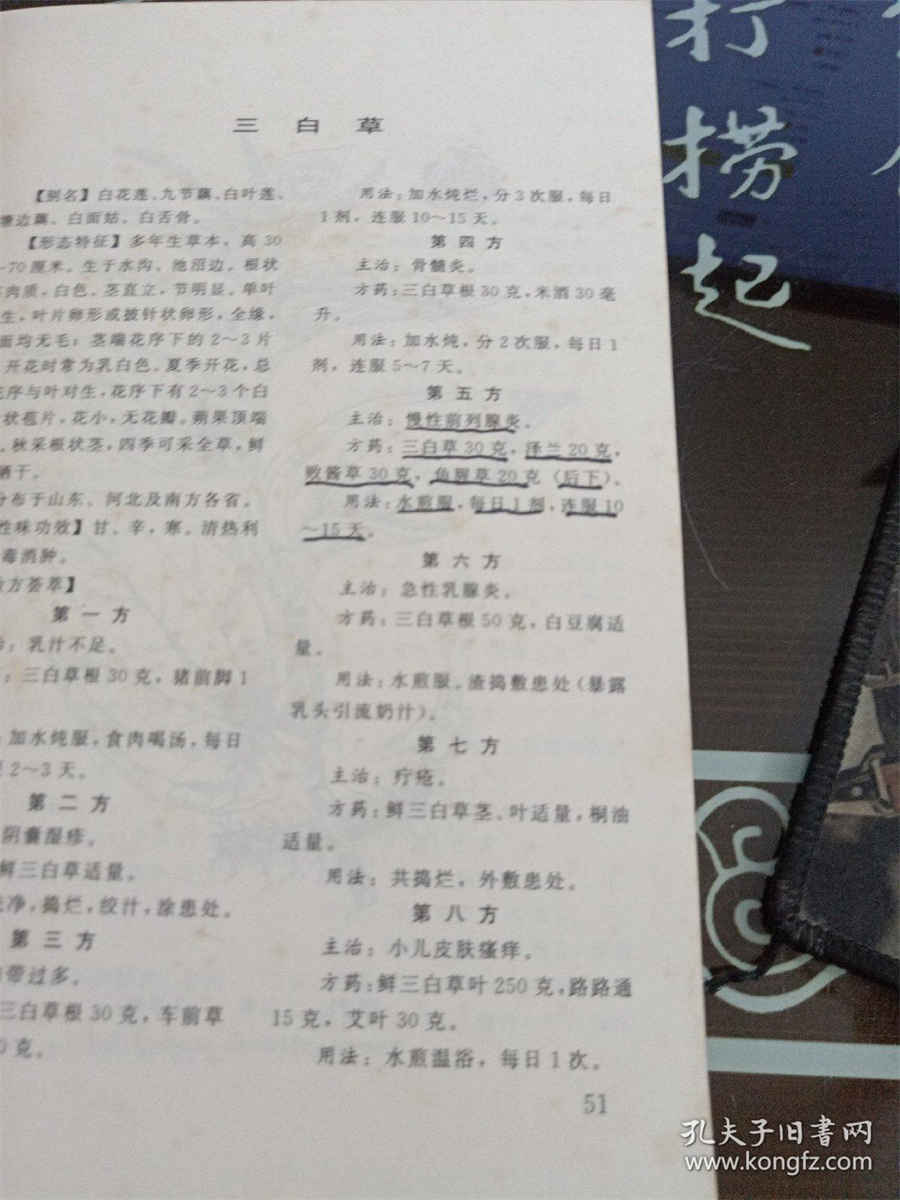 三白草
【别名】白花莲、九节藕、白叶莲、
塘边藕、白面姑、白舌骨。
【形态特征】多年生草本,高30
~70厘米。生于水沟、池沼边。根状
肉质,白色。茎直立,节明显。单叶
生,叶片卵形或披针状卵形,全缘,
面均无毛;茎端花序下的2~3片
开花时常为乳白色。夏季开花,总
花序与叶对生,花序下有2~3个白
状苞片,花小,无花瓣。蒴果顶端
。秋采根状茎,四季可采全草,鲜
晒干。
分布于山东、河北及南方各省。
性味功效】甘、辛,寒。清热利
毒消肿。
方荟萃】
第一方
:乳汁不足。
:三白草根30克,猪前脚1
加水炖服,食肉喝汤,每日
2~3天。
第二方
阴囊湿疹。
鲜三白草适量。
净,捣烂,绞汁,涂患处。
第三方
带过多。
三白草根30克,车前草
0克。
用法:加水炖烂,分3次服,每日
1剂,连服10~15天。
第四方
主治:骨髓炎。
方药:三白草根30克,米酒30毫
升。
用法:加水炖,分2次服,每日1
剂,连服5~7天。
第五方
主治:慢性前列腺炎。
方药:三白草30克,泽兰20克,
败酱草30克,鱼腥草20克(后下)。
用法:水煎服,每日1剂,连服10
~15天。
第六方
主治:急性乳腺炎。
方药:三白草根50克,白豆腐适
量。
用法:水煎服。渣捣敷患处(暴露
乳头引流奶汁)。
第七方
主治:疔疮。
方药:鲜三白草茎、叶适量,桐油
适量。
用法:共捣烂,外敷患处。
第八方
主治:小儿皮肤瘙痒。
方药:鲜三白草叶250克,路路通
15克,艾叶30克。
用法:水煎温浴,每日1次。
51
打捞起
孔夫子旧书网
www.kongfz.com